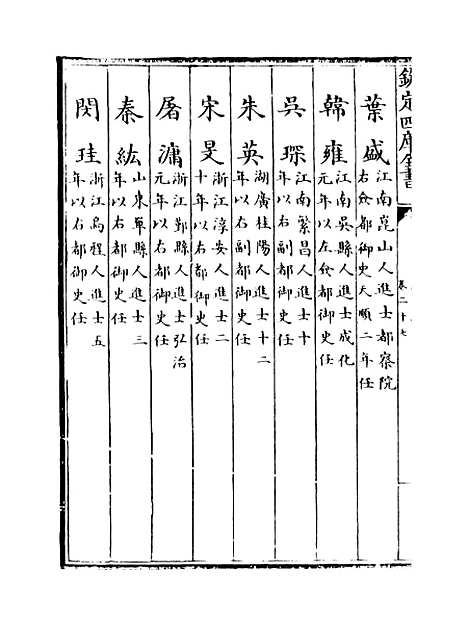 欽定四庫全書
卷二十七
葉盛 江南崑山人進士都察院右僉都御史天順二年任
韓雍 江南吳縣人進士成化元年以左僉都御史任
吳琛 江南繁昌人進士十年以右副都御史任
朱英 湖廣桂陽人進士十二年以右副都御史任
宋旻 浙江淳安人進士二十年以右都御史任
屠滽 浙江鄞縣人進士弘治元年以右都御史任
秦紘 山東單縣人進士三年以右都御史任
閔珪 浙江烏程人進士五年以右都御史任